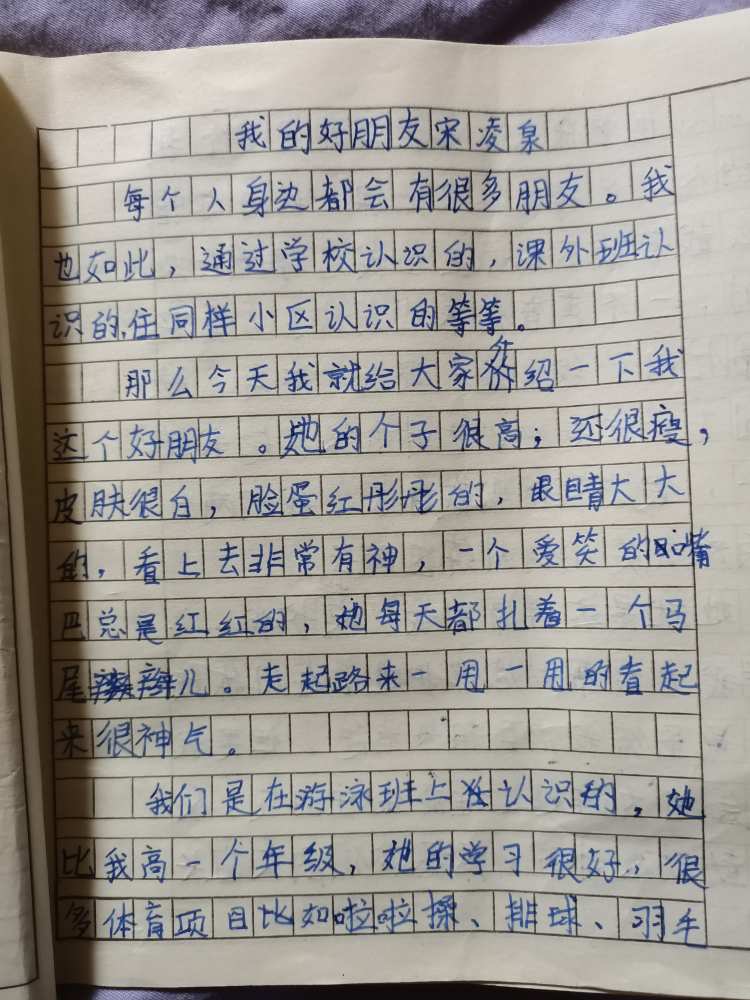 我的好朋友宋凌泉
每个人身边都会有很多朋友。我
也如此，通过学校认识的，课外班认
识的，住同样小区认识的等等。
那么今天我就给大家介绍一下我
这个好朋友。她的个子很高；还很瘦，
皮肤很白，脸蛋红彤彤的，眼睛大大
的，看上去非常有神，一个爱笑的嘴
巴总是红红的，她每天都扎着一个马
尾辫儿。走起路来一甩一甩的看起
来很神气。
我们是在游泳班上认识的，她
比我高一个年级，她的学习很好，很
多体育项目比如啦啦操、排球、羽毛